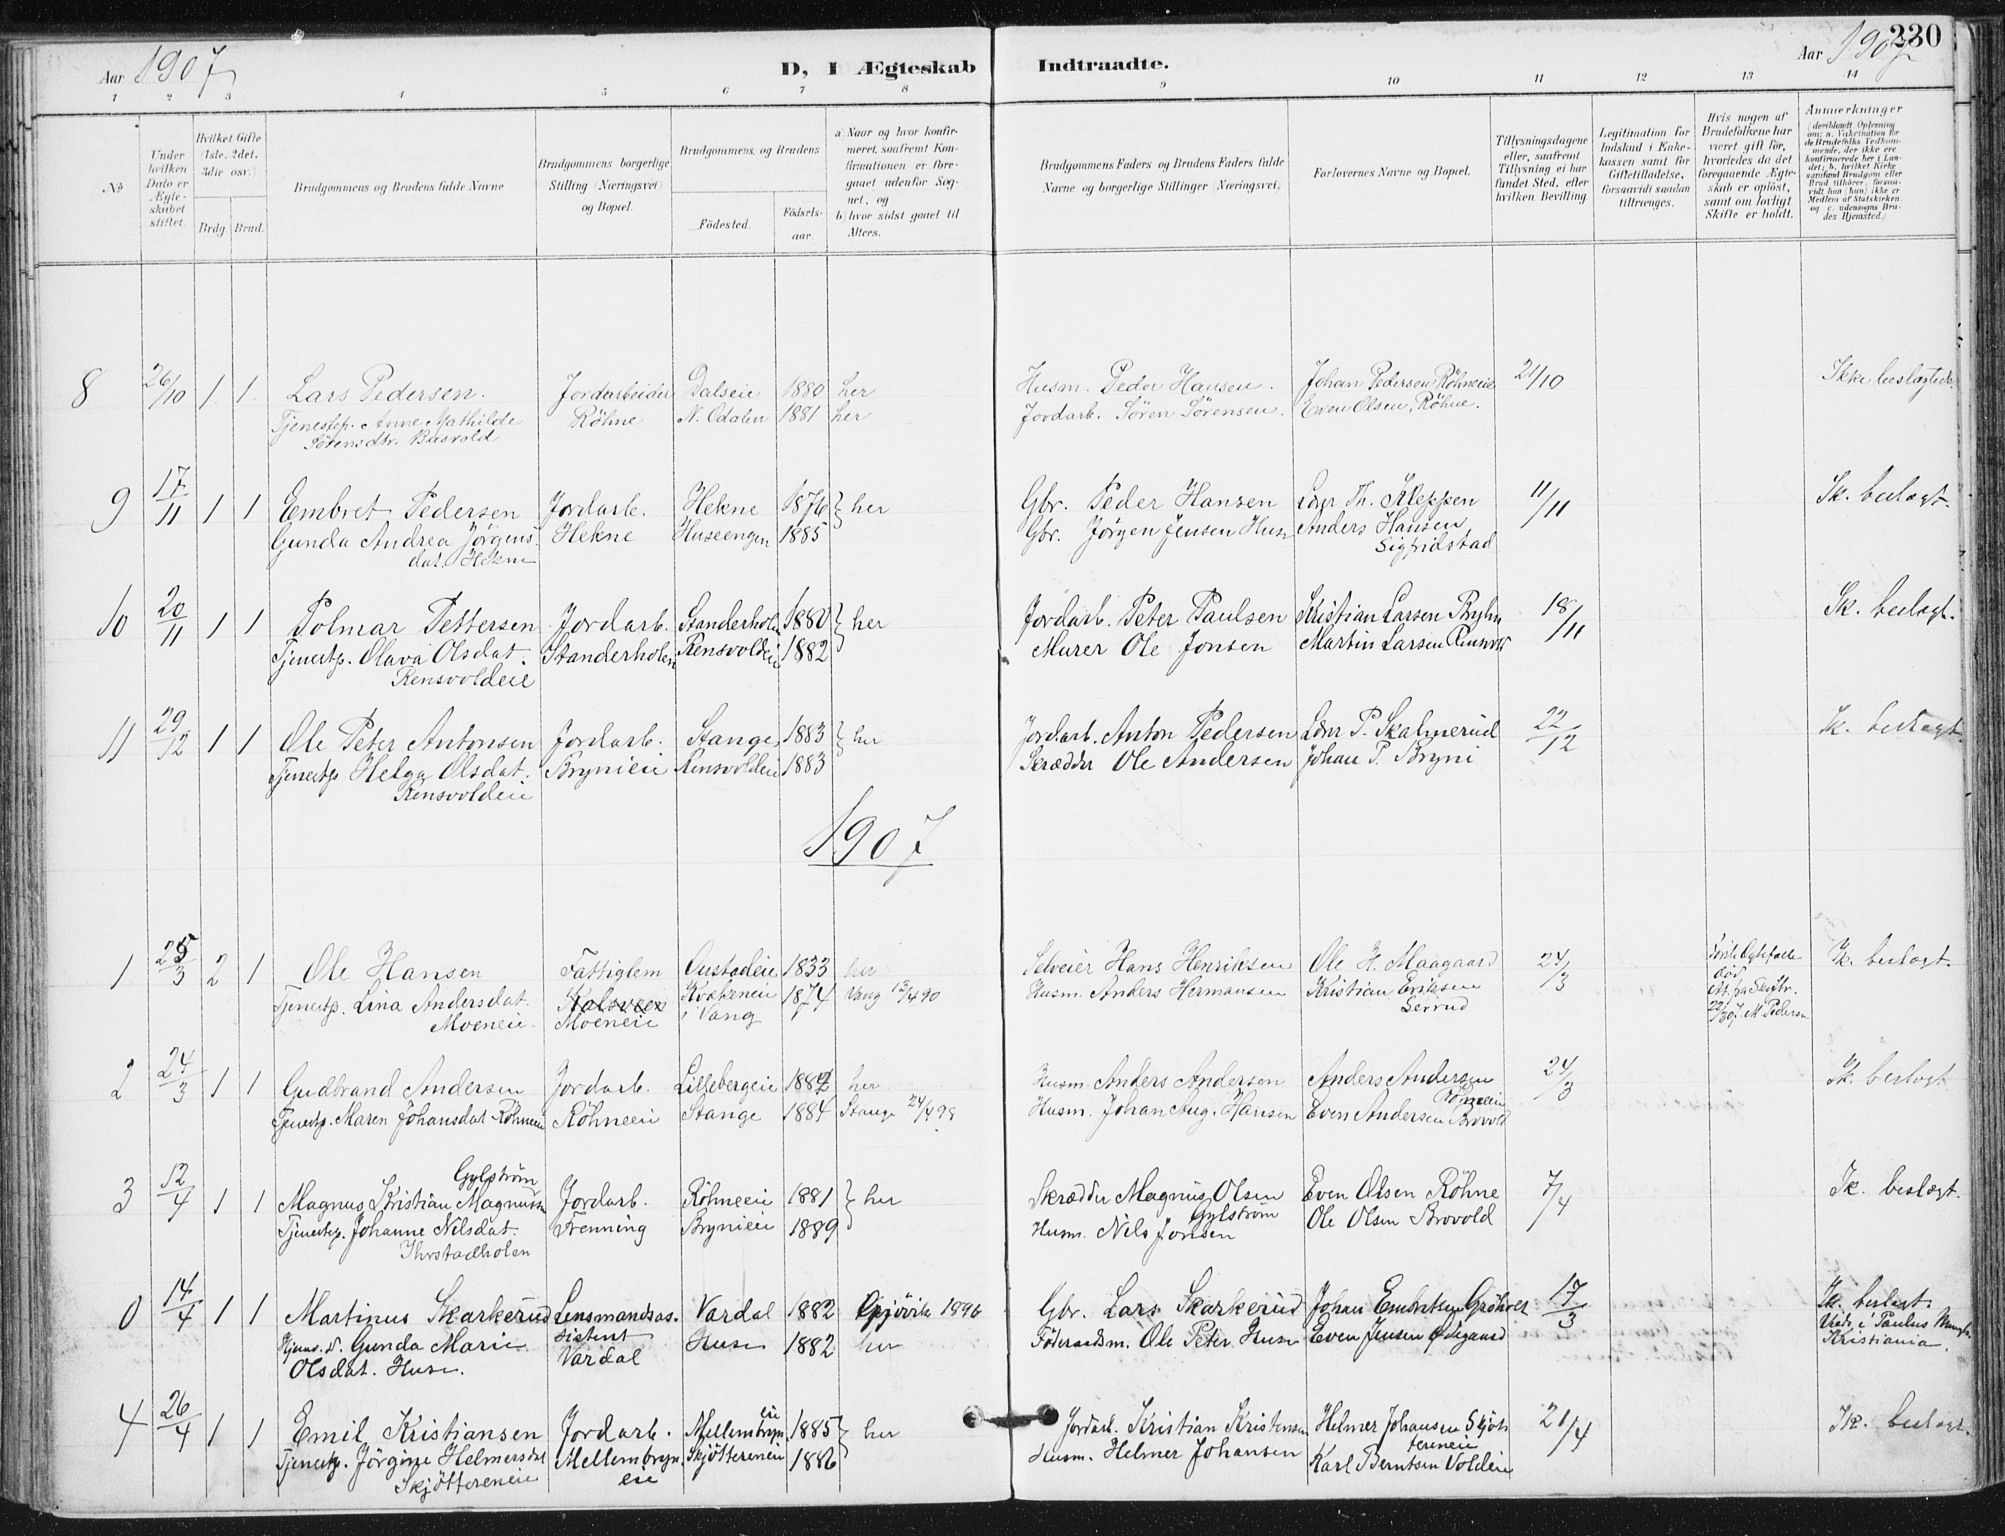 230
Aar 1907
D, I Ægteskab Indtraadte.
Aar 1907
1 2 3 4 5 6 7 8 9 10 11 12 13 14
No
Under hvilken Dato er Ægteskabet stiftet.
Hvilket Gifte (1ste, 2det, 3die osv.)
Brdg. Brud.
Brudgommens og Brudens fulde Navne
Brudgommens borgerlige Stilling (Næringsvei) og Bopæl.
Brudgommens og Brudens
Födested.
Födselsaar.
a) Naar og hvor konfirmeret, saafremt Konfirmationen er foregaaet udenfor Sognet, og
b) hvor sidst gaaet til Alters.
Brudgommens Faders og Brudens Faders fulde Navne og borgerlige Stillinger (Næringsvei)
Forlovernes Navne og Bopæl.
Tillysningsdagene eller, saafremt Tillysning ei har fundet Sted, efter hvilken Bevilling
Legitimation for Indskud i Enkekassen samt for Giftetilladelse, forsaavidt saadan tiltrænges.
Hvis nogen af Brudefolkene har været gift för, hvorledes da det foregaaende Ægteskab er oplöst, samt om lovligt Skifte er holdt.
Anmærkninger
8 26/10 1. 1. Lars Pedersen. Jordarbeider Dalseie 1880 her Husm. Peder Hansen. Johan Pedersen Röhneeie 21/10 Ikke beslægtede
Tjenestep. Anne Mathilde Röhne N. Odalen 1881 her Jordarb. Sören Sörensen. Even Olsen, Röhne.
Sörensdtr. Busvold
9 17/11 1 1 Embret Pedersen Jordarb. Hekne 1876 } her Gbr. Peder Hansen Th. Kleppen 11/11 Ik. beslægt.
Gunda Andrea Jørgens- Hekne Huseengen 1885 Gbr. Jørgen Jensen Huse Anders Hansen
dat. Hekne Sigfridstad
10 20/11 1 1 Polmar Pettersen Jordarb. Standerholen 1880 } her Jordarb. Peter Paulsen Kristian Larsen Bryhn 18/11 Ik. beslægt.
Tjenestp. Olava Olsdat. Standerholen Rensvoldeie 1882 Murer Ole Jonsen Martin Larsen Rensvold
Rensvoldeie
11 29/12 1 1 Ole Peter Antonsen Jordarb. Stange 1883 } her Jordarb. Anton Pedersen P. Skalmerud 22/12 Ik. beslægt.
Tjenestp Helga Olsdat. Brynieie Rensvoldeie 1883 Skrædder Ole Andersen Johan P. Bryni
Rensvoldeie
1907
1 25/3 2 1 Ole Hansen Fattiglem Oustadeie 1833 her Selveier Hans Henriksen Ole H. Maagaard 24/3 Ik. beslægt.
Tjenestp. Lina Andersdat. Kvækneeie 1874 Vang 13/4 90 Husm. Anders Hermansen Kristian Eriksen
Moeneie. Moeneie i Vang Serrud
M. Pedersen
2 24/3 1 1 Gudbrand Andersen Jordarb. Lillebergeie 1882 her Husm. Anders Andersen Anders Andersen 24/3 Ik. beslægt
Tjenestp. Maren Johansdat Röhneeie Röhneeie Stange 1884 Stange 24/4 98 Husm. Johan Aug. Hansen Even Andersen Brovold
3 12/4 1 1 Gylström
Magnus Kristian Magnussen Jordarb. Röhneeie 1881 } her Skrædder Magnus Olsen Even Olsen Röhne 7/4 Ik. beslægt.
Tjenestp. Johanne Nilsdat. Frenning Brynieie 1889 Gylström Ole Olsen Brovold
Husm. Nils Jonsen
0 14/4 1 1 Martinus Skarkerud Lensmandsas- Vardal 1882 Gjövik 1896 Gbr. Lars Skarkerud Johan Embretsen Gröhvet 17/3 Ik. beslægt.
Gunda Marie sistent Huse 1882 her Föderaadsm. Ole Peter Huse Even Jensen Ødegaard Viede i Paulus Mengh.
Olsdat. Huse. Vardal Kristiania.
4 26/4 1 1 Emil Kristiansen Jordarb. Mellembryn- eie 1885 } her Jordarb. Kristian Kristensen Helmer Johansen Skjöt- 21/4 Ik. beslægt.
Tjenestp. Jörgine Helmersdat Mellembryn- Skjöttereneie 1886 Husm. Helmer Johansen tereneie
Skjöttereneie eie Karl Berntsen Voldeie